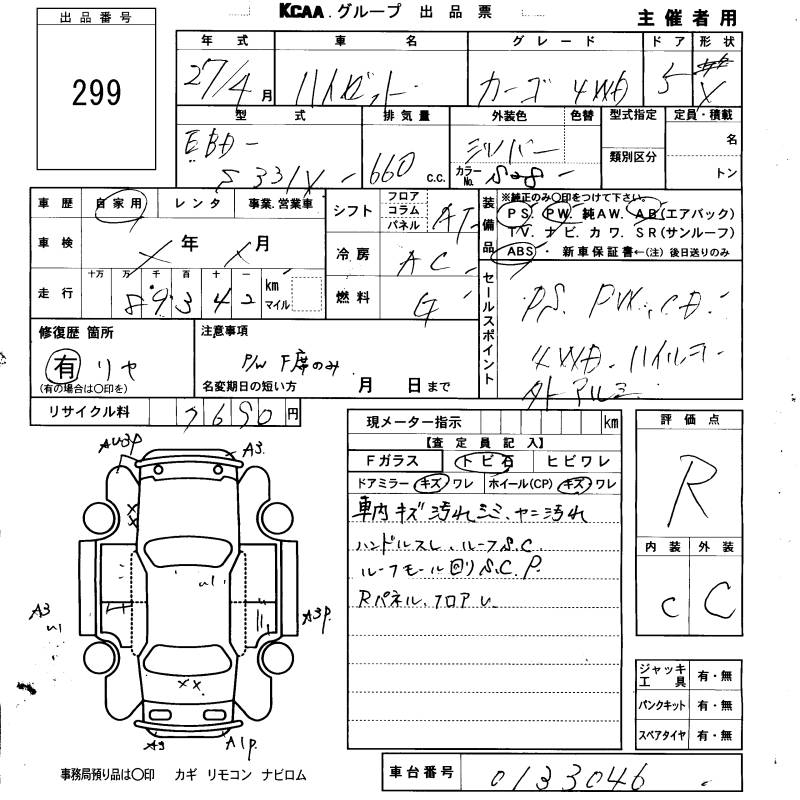 KCAA.グループ 出品票
主催者用
出品番号
299
年式 車名 グレード ドア 形状
27/4月 ハイゼット カーゴ 4WD 5 X
型式 排気量 外装色 色替 型式指定 定員・積載
EBD-
S331X 660 c.c. シルバー 名
カラーNo. S28 類別区分 トン
車歴 自家用 レンタ 事業.営業車
シフト フロア コラム パネル AT
装備品 ※純正のみ○印をつけて下さい。
PS. PW. 純AW. AB(エアバック)
TV. ナビ. カワ. SR(サンルーフ)
ABS・ 新車保証書←(注)後日送りのみ
車検 X年 X月
冷房 AC
走行 十万 万 千 百 十 一 km マイル
8 9 3 4 2
燃料 G
セールスポイント
PS. PW. CD.
4WD. ハイルーフ
外アルミ
修復歴 箇所
有 リヤ
(有の場合は○印を)
注意事項
P/W F席のみ
名変期日の短い方 月 日まで
リサイクル料 7690円
現メーター指示 km
【査定員記入】
Fガラス トビ石 ヒビワレ
ドアミラー キズ ワレ ホイール(CP) キズ ワレ
車内キズ汚れシミ、ヤニ汚れ
ハンドルスレ、ルーフS.C.
ルーフモール回りS.C.P.
Rパネル、フロアU
評価点
R
内装 外装
C C
AU3P
A3.
A3
A3P.
A3
A1P.
ジャッキ工具 有・無
パンクキット 有・無
スペアタイヤ 有・無
事務局預り品は○印 カギ リモコン ナビロム
車台番号 0133046